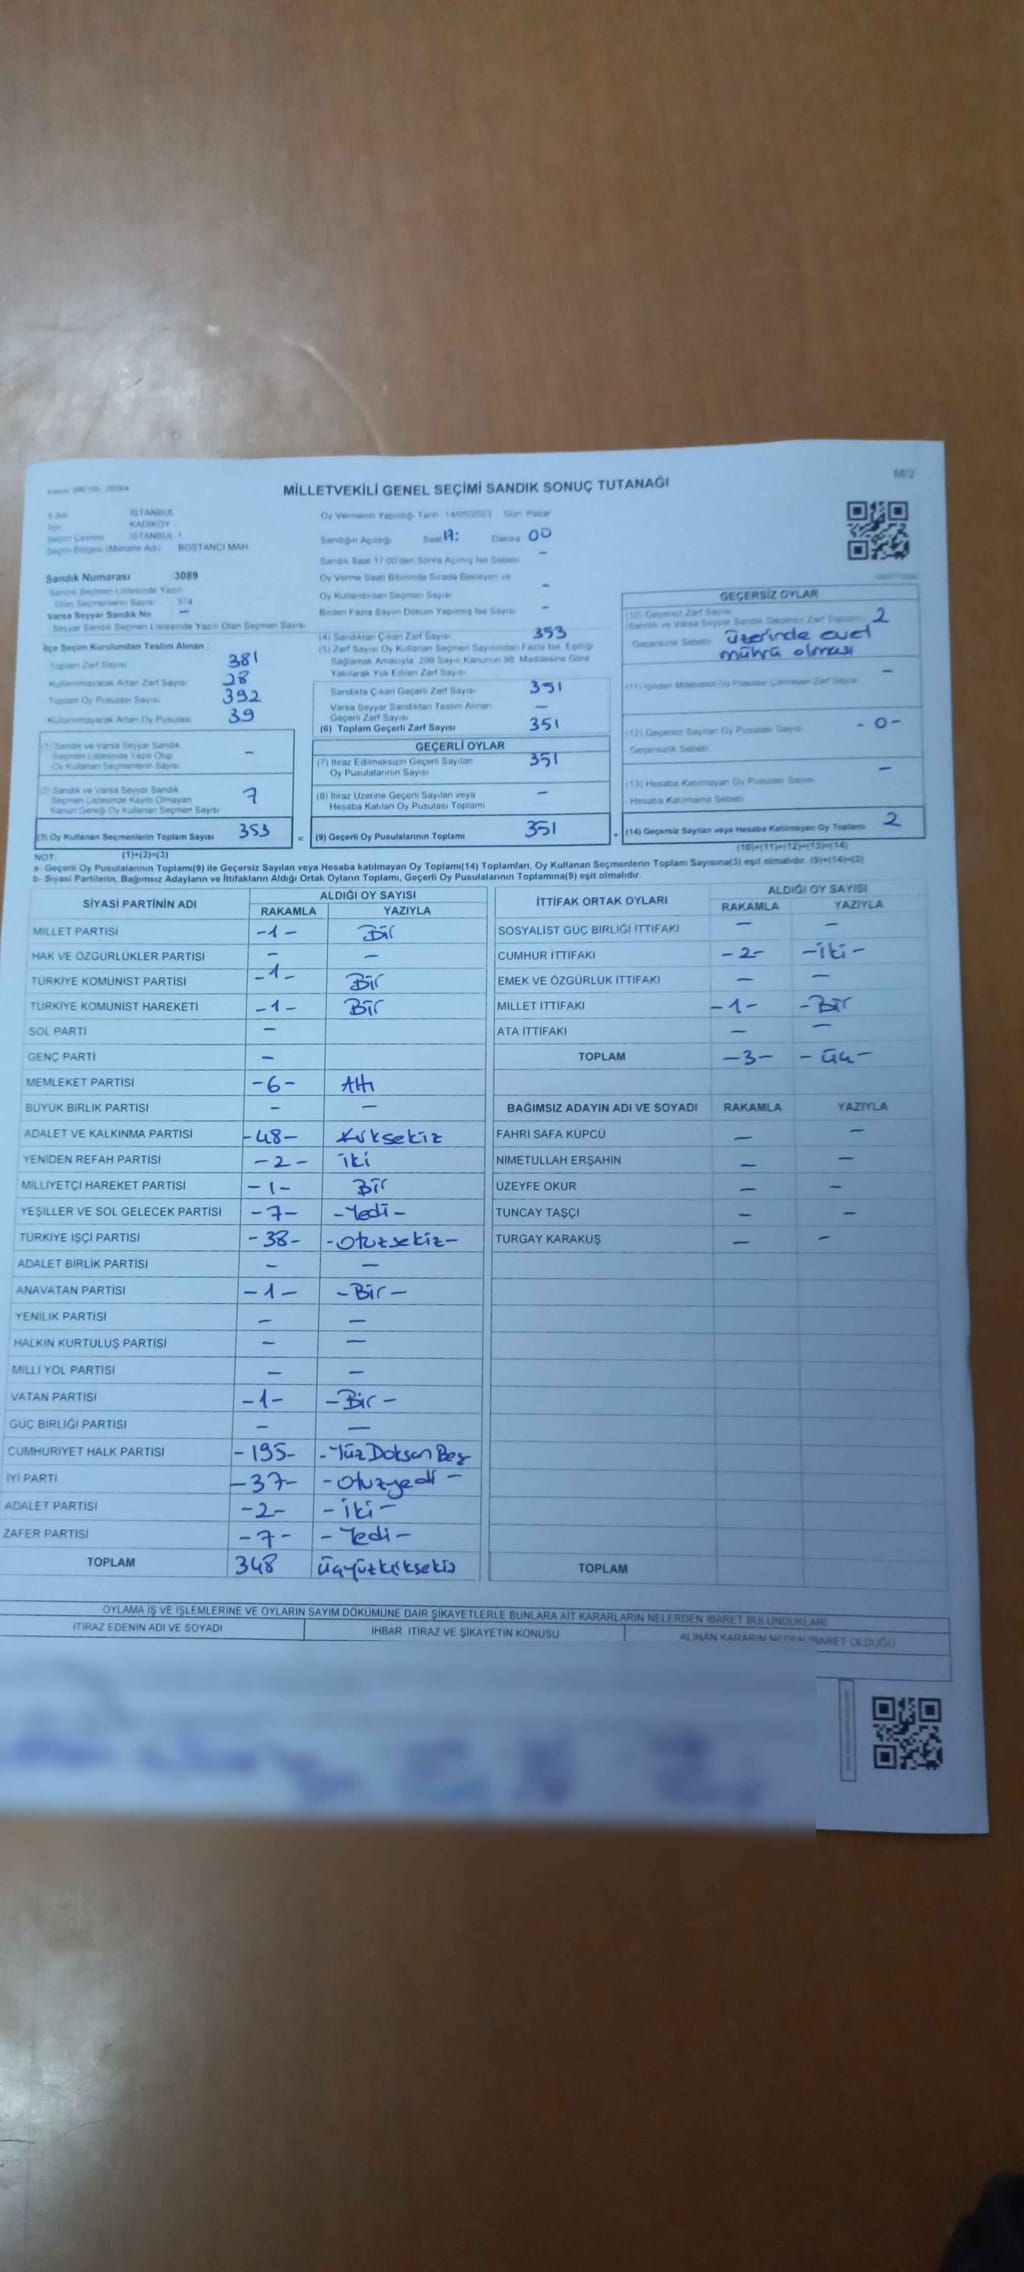 MİLLETVEKİLİ GENEL SEÇİMİ SANDIK SONUÇ TUTANAĞI
M/2
İSTANBUL
KADIKÖY
İSTANBUL 1
Seçim Bölgesi (Mahalle Adı) BOSTANCI MAH.
Sandık Numarası 3089
Varsa Seyyar Sandık No –
Seyyar Sandık Seçmen Listesinde Yazılı Olan Seçmen Sayısı
İlçe Seçim Kurulundan Teslim Alınan :
Toplam Zarf Sayısı 381
Kullanılmayarak Artan Zarf Sayısı 28
Toplam Oy Pusulası Sayısı 392
Kullanılmayarak Artan Oy Pusulası 39
(1) Sandık ve Varsa Seyyar Sandık
Seçmen Listesinde Yazılı Olup
Oy Kullanan Seçmenlerin Sayısı –
(2) Sandık ve Varsa Seyyar Sandık
Seçmen Listesinde Kayıtlı Olmayan
Kanun Gereği Oy Kullanan Seçmen Sayısı 7
(3) Oy Kullanan Seçmenlerin Toplam Sayısı 353 =
Oy Vermenin Yapıldığı Tarih : 14/05/2023 Gün: Pazar
Sandığın Açıldığı Saat 17: Dakika 00
Sandık Saat 17.00'den Sonra Açılmış İse Sebebi –
Oy Verme Saati Bitiminde Sırada Bekleyen ve
Oy Kullandırılan Seçmen Sayısı –
Birden Fazla Sayım Döküm Yapılmış İse Sayısı –
(4) Sandıktan Çıkan Zarf Sayısı 353
(5) Zarf Sayısı Oy Kullanan Seçmen Sayısından Fazla İse, Eşitliği
Sağlamak Amacıyla, 298 Sayılı Kanunun 98. Maddesine Göre
Yakılarak Yok Edilen Zarf Sayısı
Sandıkta Çıkan Geçerli Zarf Sayısı 351
Varsa Seyyar Sandıktan Teslim Alınan
Geçerli Zarf Sayısı –
(6) Toplam Geçerli Zarf Sayısı 351
GEÇERLİ OYLAR
(7) İtiraz Edilmeksizin Geçerli Sayılan
Oy Pusulalarının Sayısı 351
(8) İtiraz Üzerine Geçerli Sayılan veya
Hesaba Katılan Oy Pusulası Toplamı –
(9) Geçerli Oy Pusulalarının Toplamı 351 +
GEÇERSİZ OYLAR
(10) Geçersiz Zarf Sayısı
(Sandık ve Varsa Seyyar Sandık Geçersiz Zarf Toplamı) 2
Geçersizlik Sebebi üzerinde evet
mührü olması
(11) İçinden Milletvekili Oy Pusulası Çıkmayan Zarf Sayısı –
(12) Geçersiz Sayılan Oy Pusulası Sayısı - 0 -
Geçersizlik Sebebi
(13) Hesaba Katılmayan Oy Pusulası Sayısı –
Hesaba Katılmama Sebebi
(14) Geçersiz Sayılan veya Hesaba Katılmayan Oy Toplamı 2
NOT: (1)+(2)=(3) (10)+(11)+(12)+(13)=(14)
a- Geçerli Oy Pusulalarının Toplamı(9) ile Geçersiz Sayılan veya Hesaba katılmayan Oy Toplamı(14) Toplamları, Oy Kullanan Seçmenlerin Toplam Sayısına(3) eşit olmalıdır. (9)+(14)=(3)
b- Siyasi Partilerin, Bağımsız Adayların ve İttifakların Aldığı Ortak Oyların Toplamı, Geçerli Oy Pusulalarının Toplamına(9) eşit olmalıdır.
SİYASİ PARTİNİN ADI ALDIĞI OY SAYISI
RAKAMLA YAZIYLA
MİLLET PARTİSİ -1- Bir
HAK VE ÖZGÜRLÜKLER PARTİSİ – –
TÜRKİYE KOMÜNİST PARTİSİ -1- Bir
TÜRKİYE KOMÜNİST HAREKETİ -1- Bir
SOL PARTİ –
GENÇ PARTİ –
MEMLEKET PARTİSİ -6- Altı
BÜYÜK BİRLİK PARTİSİ – –
ADALET VE KALKINMA PARTİSİ -48- Kırksekiz
YENİDEN REFAH PARTİSİ -2- iki
MİLLİYETÇİ HAREKET PARTİSİ -1- Bir
YEŞİLLER VE SOL GELECEK PARTİSİ -7- -Yedi-
TÜRKİYE İŞÇİ PARTİSİ -38- -Otuzsekiz-
ADALET BİRLİK PARTİSİ – –
ANAVATAN PARTİSİ -1- -Bir-
YENİLİK PARTİSİ – –
HALKIN KURTULUŞ PARTİSİ – –
MİLLİ YOL PARTİSİ – –
VATAN PARTİSİ -1- -Bir-
GÜÇ BİRLİĞİ PARTİSİ – –
CUMHURİYET HALK PARTİSİ -195- -Yüz Doksan Beş
İYİ PARTİ -37- -Otuzyedi-
ADALET PARTİSİ -2- -iki-
ZAFER PARTİSİ -7- -Yedi-
TOPLAM 348 üçyüzkırksekiz
İTTİFAK ORTAK OYLARI ALDIĞI OY SAYISI
RAKAMLA YAZIYLA
SOSYALİST GÜÇ BİRLİĞİ İTTİFAKI – –
CUMHUR İTTİFAKI -2- -iki-
EMEK VE ÖZGÜRLÜK İTTİFAKI – –
MİLLET İTTİFAKI -1- -Bir
ATA İTTİFAKI – –
TOPLAM -3- -üç-
BAĞIMSIZ ADAYIN ADI VE SOYADI RAKAMLA YAZIYLA
FAHRİ SAFA KÜPCÜ – –
NİMETULLAH ERŞAHİN – –
UZEYFE OKUR – –
TUNCAY TAŞÇI – –
TURGAY KARAKUŞ – –
TOPLAM
OYLAMA İŞ VE İŞLEMLERİNE VE OYLARIN SAYIM DÖKÜMÜNE DAİR ŞİKAYETLERLE BUNLARA AİT KARARLARIN NELERDEN İBARET BULUNDUKLARI
İTİRAZ EDENİN ADI VE SOYADI İHBAR İTİRAZ VE ŞİKAYETİN KONUSU ALINAN KARARIN NEDEN İBARET OLDUĞU